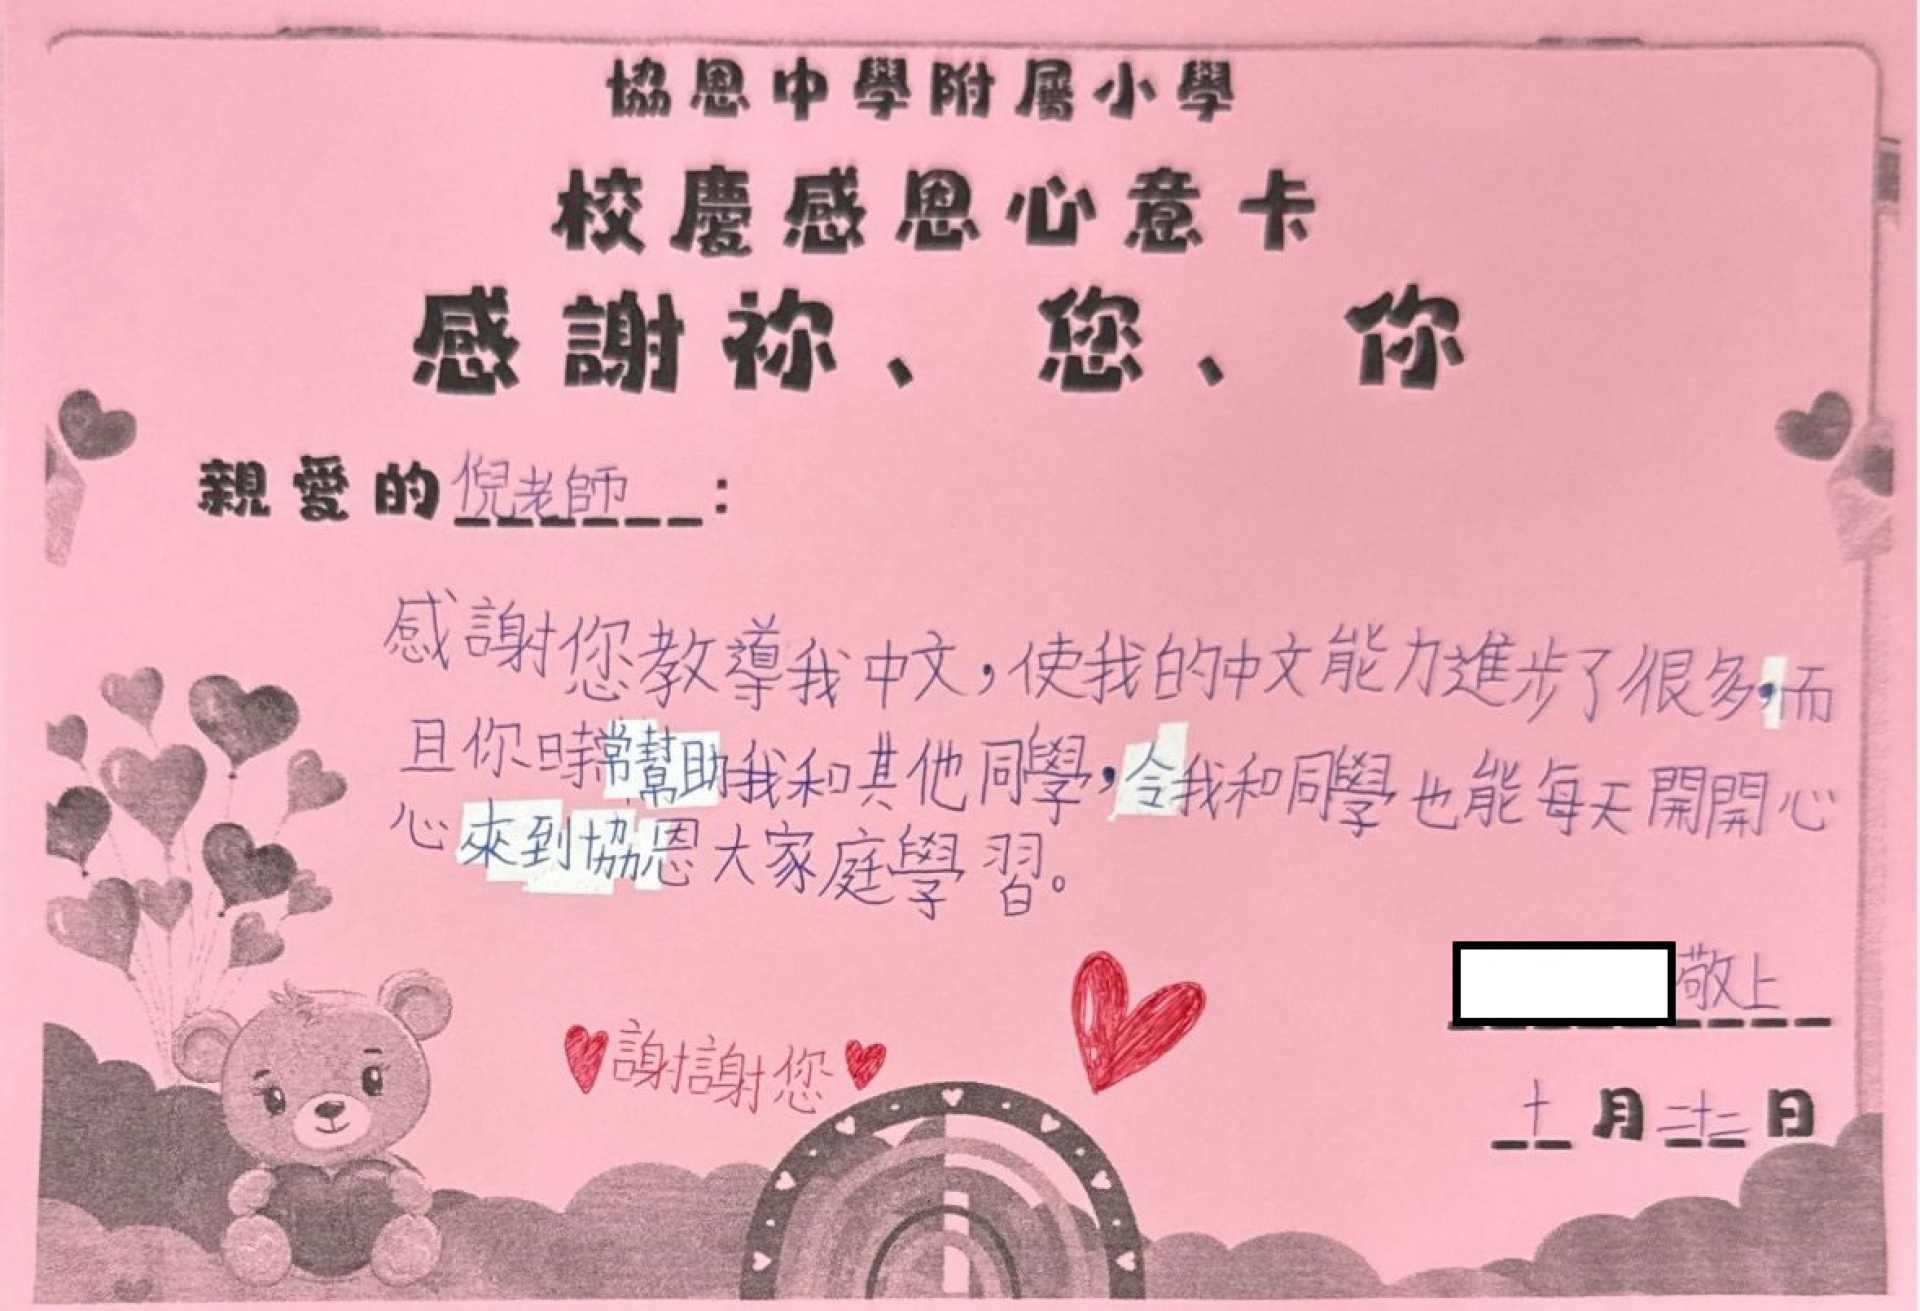 協恩中學附屬小學
校慶感恩心意卡
感謝祢、您、你
親愛的倪老師：
感謝您教導我中文，使我的中文能力進步了很多，而
且你時常幫助我和其他同學，令我和同學也能每天開開心
心來到協恩大家庭學習。
敬上
謝謝您
十月二十二日